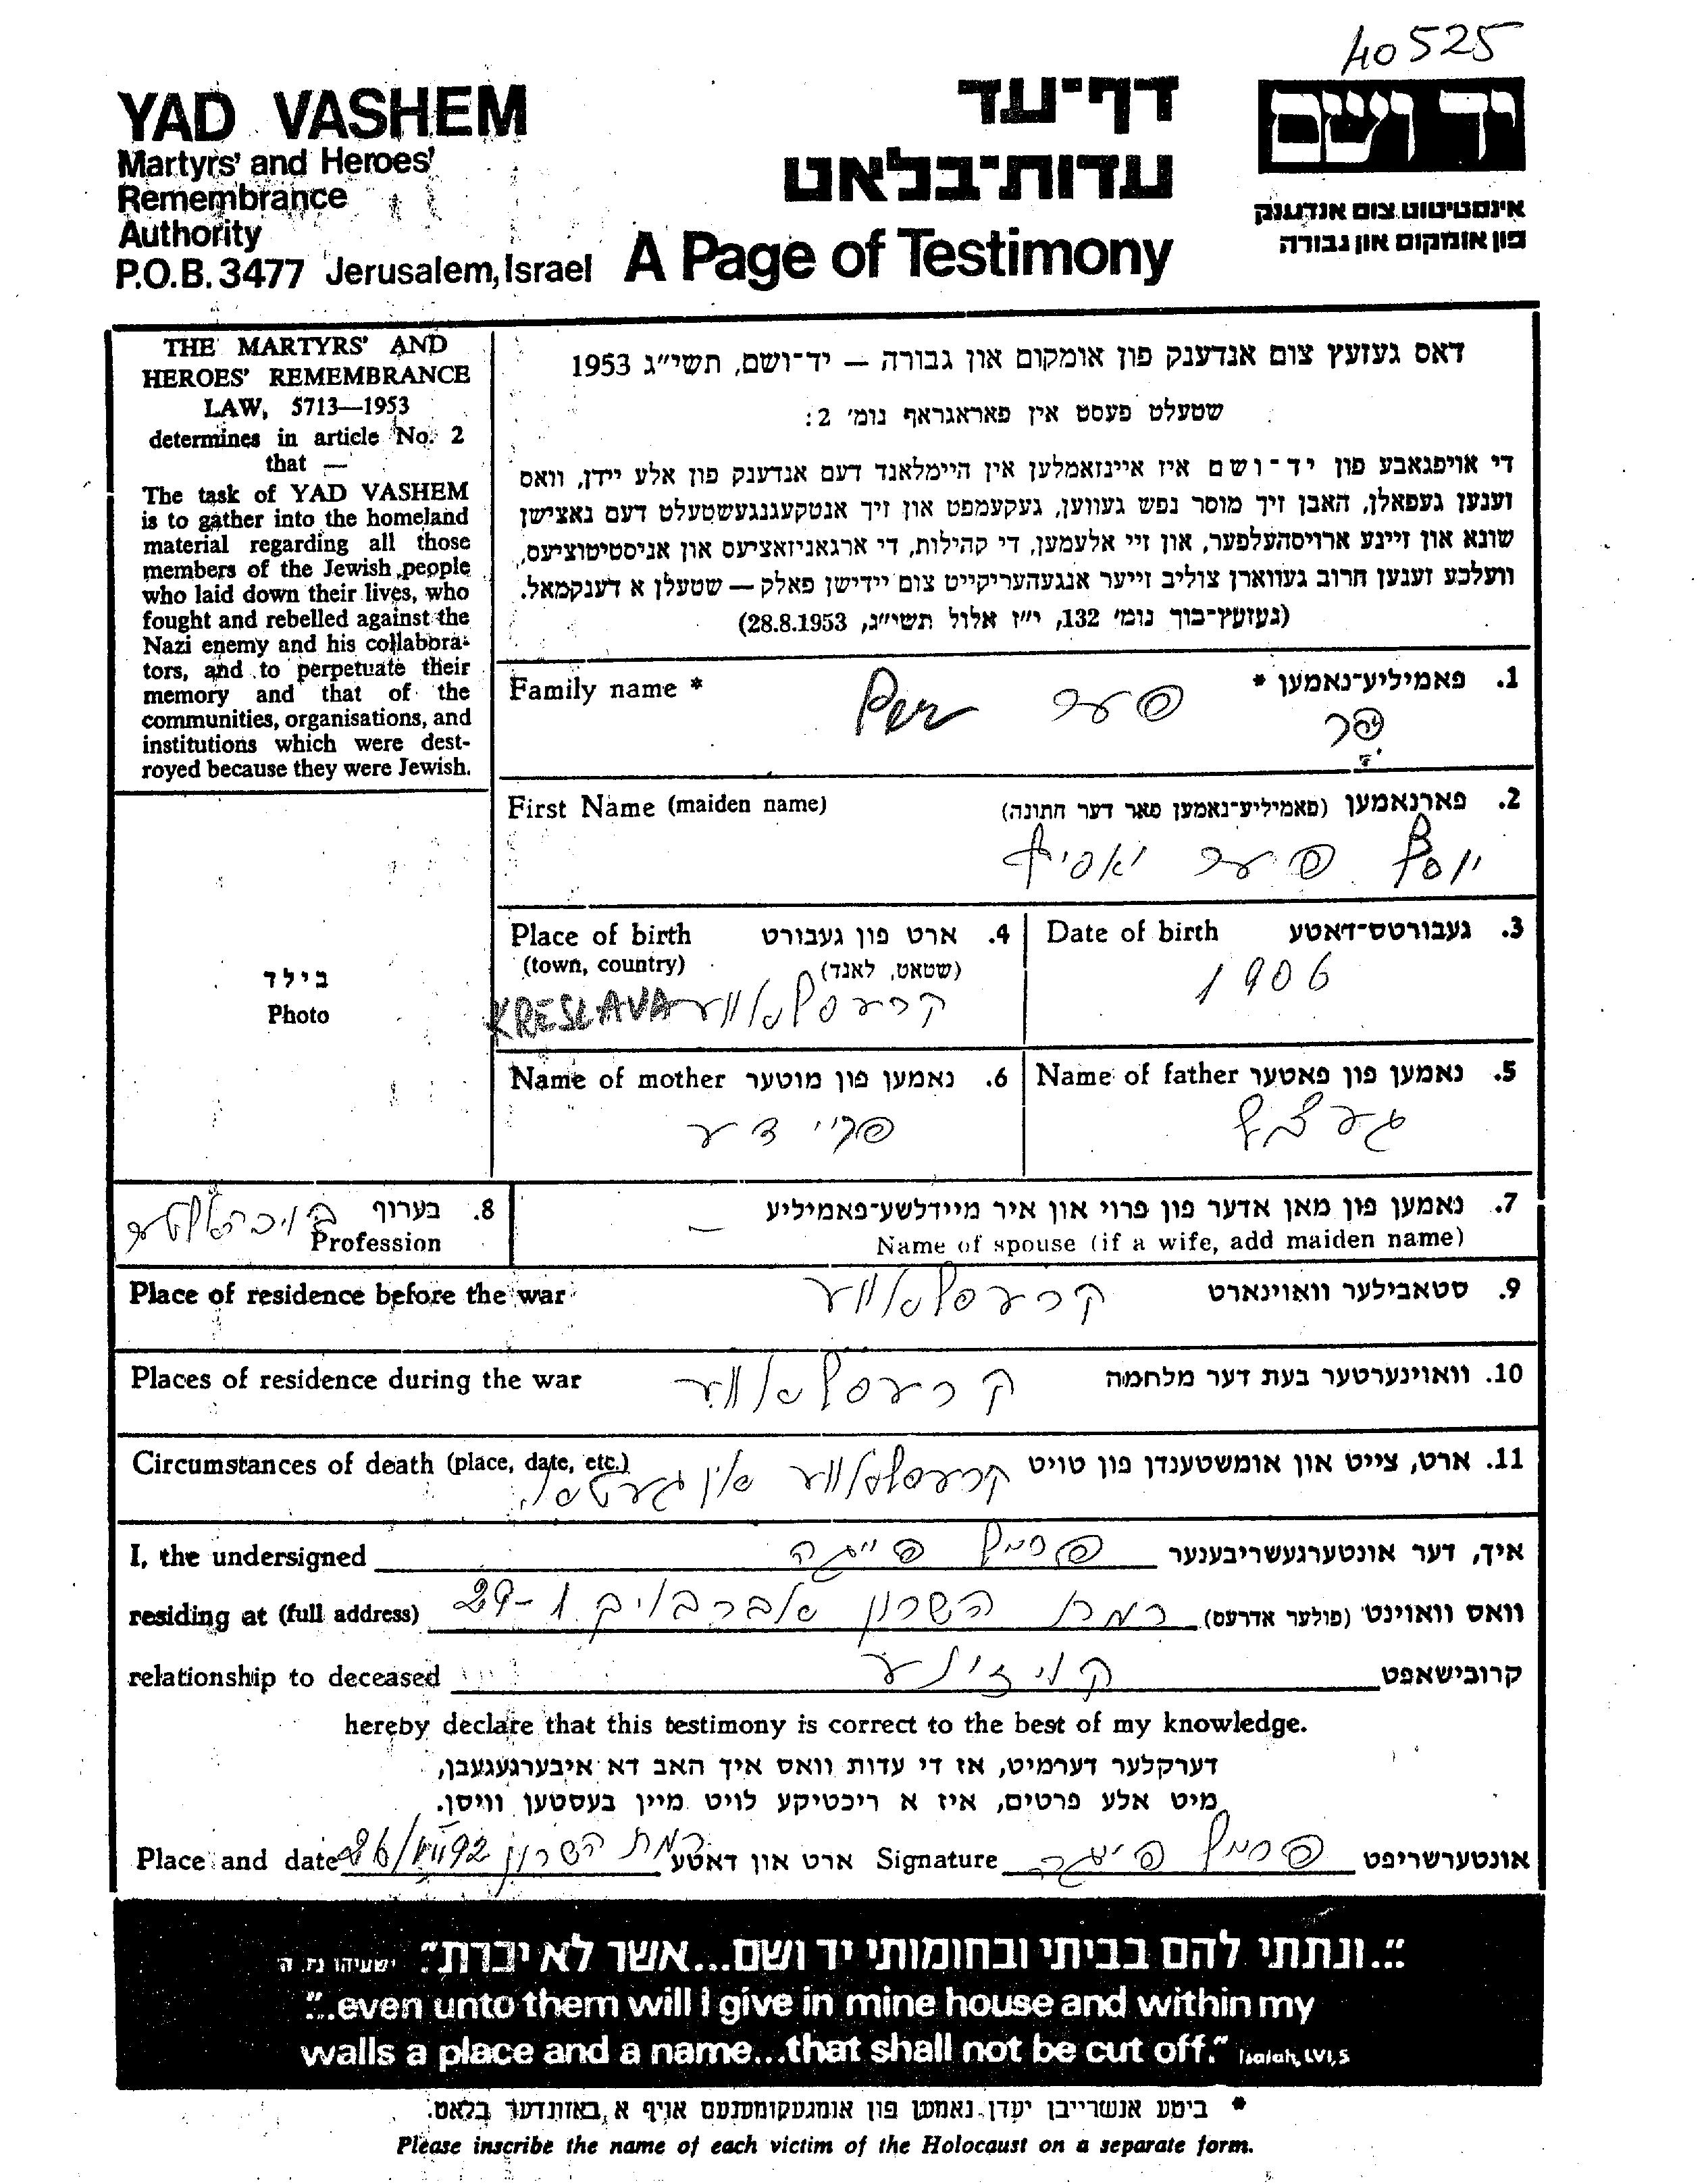 40525
YAD VASHEM
Martyrs' and Heroes'
Remembrance
Authority
P.O.B. 3477 Jerusalem, Israel
דף־עד
עדות־בלאט
A Page of Testimony
יד ושם
אינסטיטוט צום אנדענק
פון אומקום און גבורה
THE MARTYRS' AND
HEROES' REMEMBRANCE
LAW, 5713—1953
determines in article No. 2
that —
The task of YAD VASHEM
is to gather into the homeland
material regarding all those
members of the Jewish people
who laid down their lives, who
fought and rebelled against the
Nazi enemy and his collabora-
tors, and to perpetuate their
memory and that of the
communities, organisations, and
institutions which were dest-
royed because they were Jewish.
דאס געזעץ צום אנדענק פון אומקום און גבורה — יד־ושם, תשי״ג 1953
שטעלט פעסט אין פאראגראף נומ׳ 2:
די אויפגאבע פון יד־ושם איז איינזאמלען אין היימלאנד דעם אנדענק פון אלע יידן, וואס
זענען געפאלן, האבן זיך מוסר נפש געווען, געקעמפט און זיך אנטקעגנגעשטעלט דעם נאצישן
שונא און זיינע ארויסהעלפער, און זיי אלעמען, די קהילות, די ארגאניזאציעס און אניסטיטוציעס,
וועלכע זענען חרוב געווארן צוליב זייער אנגעהעריקייט צום יידישן פאלק — שטעלן א דענקמאל.
(געזעץ־בוך נומ׳ 132, י״ז אלול תשי״ג, 28.8.1953)
1. פאמיליע־נאמען * Family name *
פער Per
פר
2. פארנאמען (פאמיליע־נאמען פאר דער חתונה) First Name (maiden name)
יוסף פער יאסיף
3. געבורטס־דאטע Date of birth
1906
4. ארט פון געבורט Place of birth
(שטאט, לאנד) (town, country)
קרעסלאווע KRESLAVA
בילד
Photo
5. נאמען פון פאטער Name of father
6. נאמען פון מוטער Name of mother
פריידע
7. נאמען פון מאן אדער פון פרוי און איר מיידלשע־פאמיליע
Name of spouse (if a wife, add maiden name)
—
8. בערוף
Profession
בוכהאלטער
9. סטאבילער וואוינארט קרעסלאווע Place of residence before the war
10. וואוינערטער בעת דער מלחמה קרעסלאווע Places of residence during the war
11. ארט, צייט און אומשטענדן פון טויט קרעסלאווע אין געטא. Circumstances of death (place, date, etc.)
איך, דער אונטערגעשריבענער I, the undersigned
וואס וואוינט (פולער אדרעס) רמת השרון אברבויב 1-29 residing at (full address)
קרובישאפט קוזינע relationship to deceased
hereby declare that this testimony is correct to the best of my knowledge.
דערקלער דערמיט, אז די עדות וואס איך האב דא איבערגעגעבן,
מיט אלע פרטים, איז א ריכטיקע לויט מיין בעסטען וויסן.
אונטערשריפט Signature ארט און דאטע רמת השרון 26/VII 92 Place and date
״...ונתתי להם בביתי ובחומותי יד ושם...אשר לא יכרת״. ישעיהו נו, ה
"...even unto them will I give in mine house and within my
walls a place and a name...that shall not be cut off." Isaiah, LVI, 5
* ביטע אנשרייבן יעדן נאמען פון אומגעקומענעם אויף א באזונדער בלאט.
Please inscribe the name of each victim of the Holocaust on a separate form.